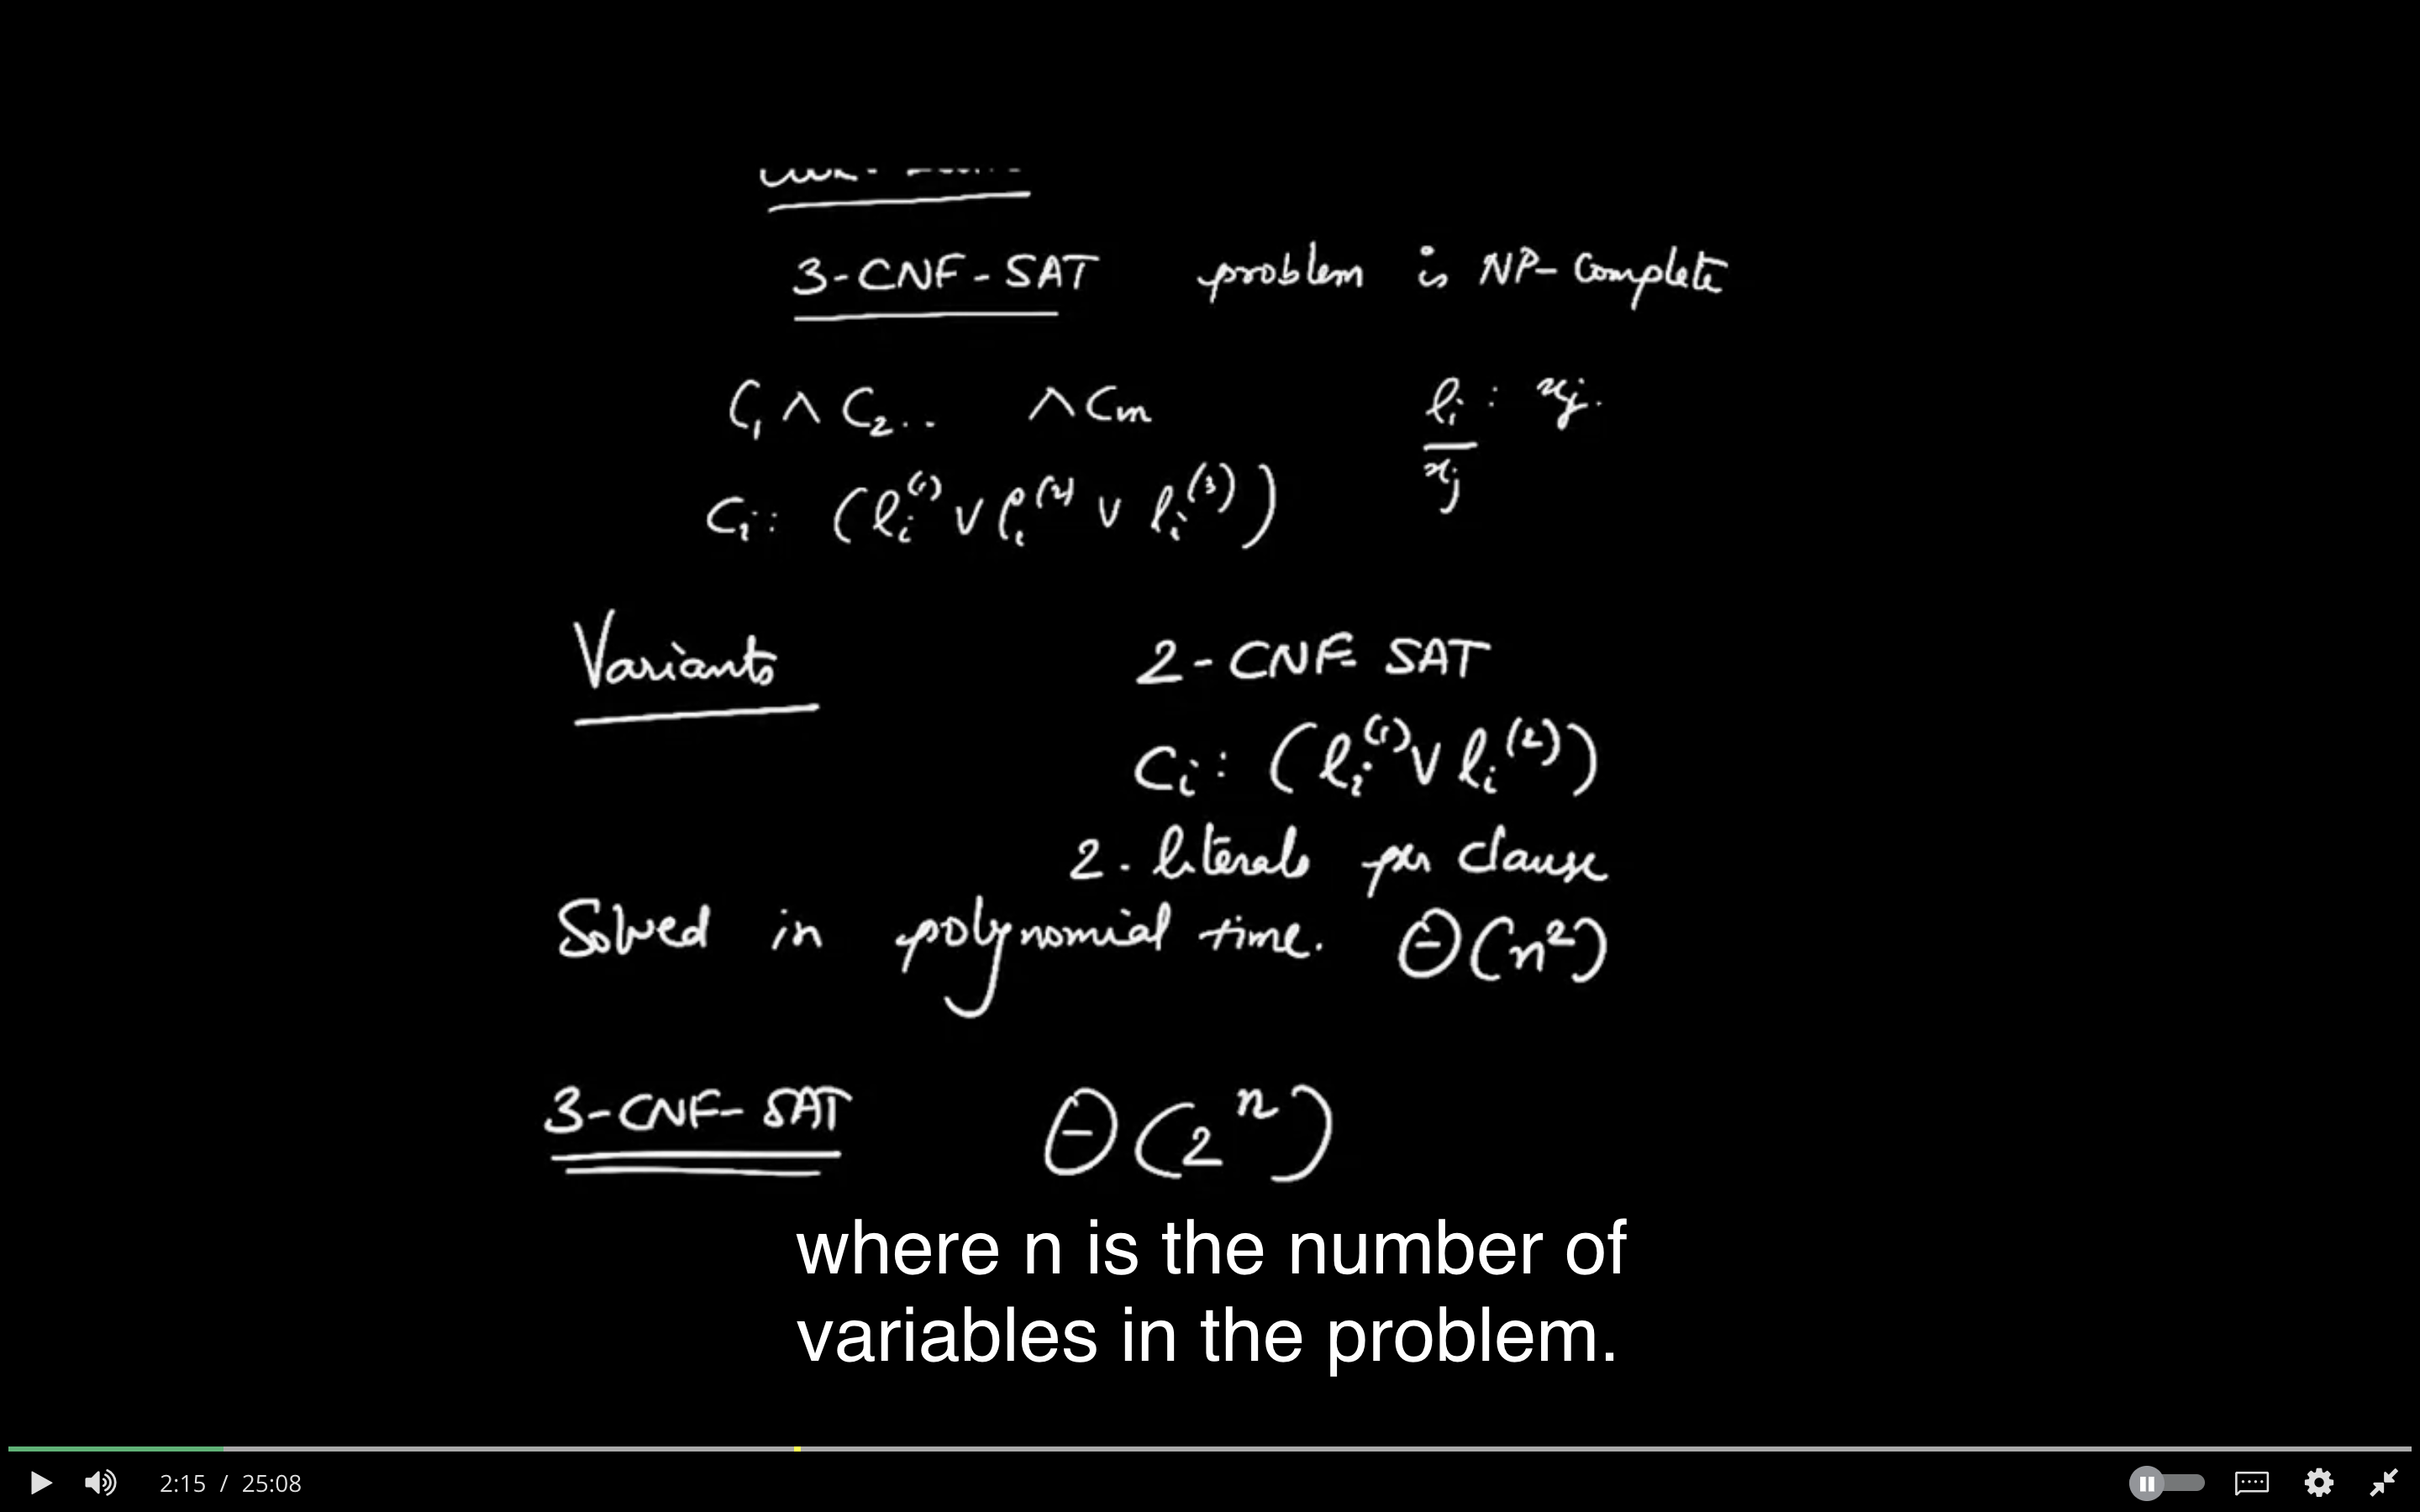 3-CNF-SAT problem is NP-Complete
C₁ ∧ C₂.. ∧ Cm lᵢ : xⱼ.
Cᵢ: (lᵢ⁽¹⁾ ∨ lᵢ⁽²⁾ ∨ lᵢ⁽³⁾) x̄ⱼ
Variants 2-CNF-SAT
Cᵢ: (lᵢ⁽¹⁾ ∨ lᵢ⁽²⁾)
2-literals per clause
Solved in polynomial time. Θ(n²)
3-CNF-SAT Θ(2ⁿ)
where n is the number of
variables in the problem.
2:15 / 25:08